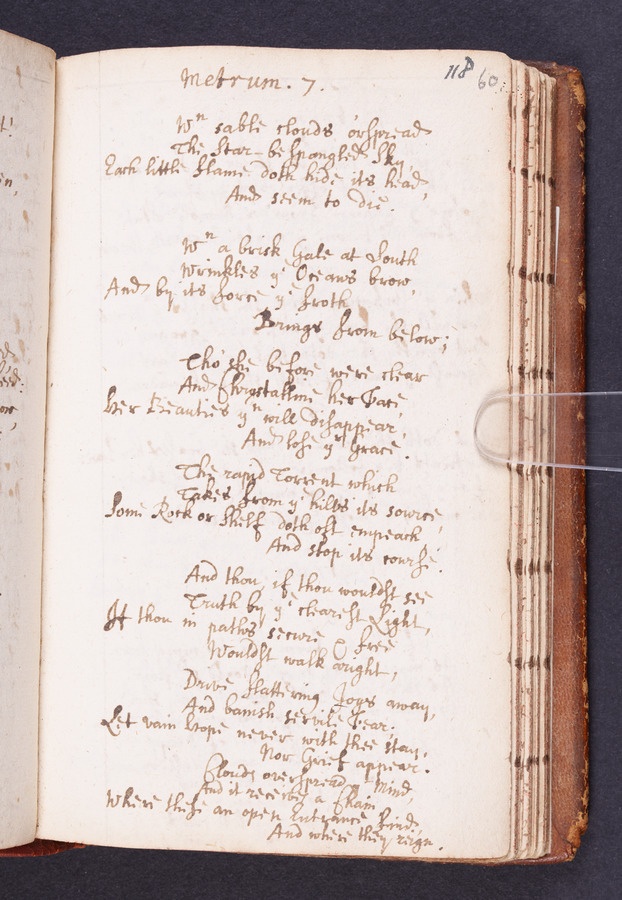 Metrum. 7.
118
60
Wn sable clouds o'rspread
The Star-bespangled Sky,
Each little flame doth hide its head,
And seem to die.
Wn a brisk Gale at South
Wrinkles ye Oceans brow,
And by its force ye froth
Brings from below;
Tho' she before were clear
And Chrystalline her Face,
Her Beauties yn will disappear
And lose yr Grace.
The rapid Torrent which
Takes from ye hills its source,
Some Rock or Shelf doth oft empeach
And stop its course.
And thou, if thou wouldst see
Truth by ye clearest Light,
If thou in paths secure & free
Wouldst walk aright,
Drive flattering Joys away,
And banish servile Fear;
Let vain Hope never with thee stay,
Nor Grief appear.
Clouds overspread ye Mind,
And it receives a Chain
Where these an open Entrance Find,
And where they reign.